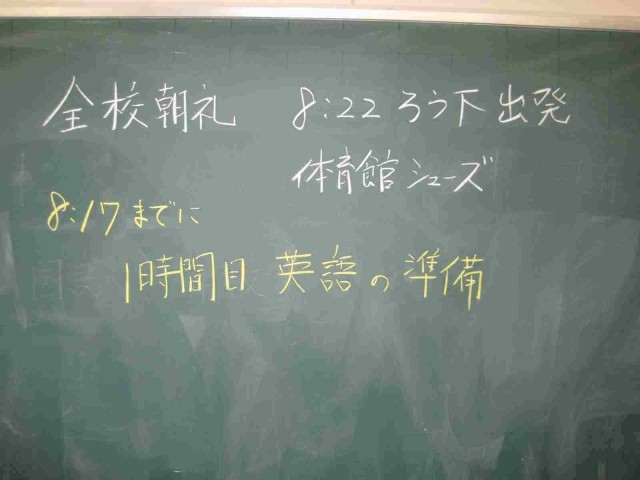 全校朝礼 8:22 ろう下出発
体育館シューズ
8:17までに
1時間目 英語の準備